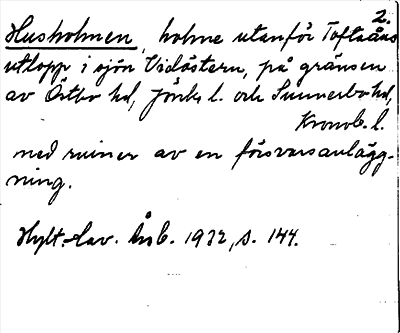 2.
Husholmen, holme utanför Toftaåns
utlopp i sjön Vidöstern, på gränsen
av Östbo hd, Jönk. l. och Sunnerbo hd,
Kronob. l.
med ruiner av en försvarsanlägg-
ning.
Hylt.-Cav. Årsb. 1932, s. 144.